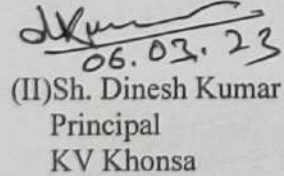 06.03.23
(II)Sh. Dinesh Kumar
Principal
KV Khonsa